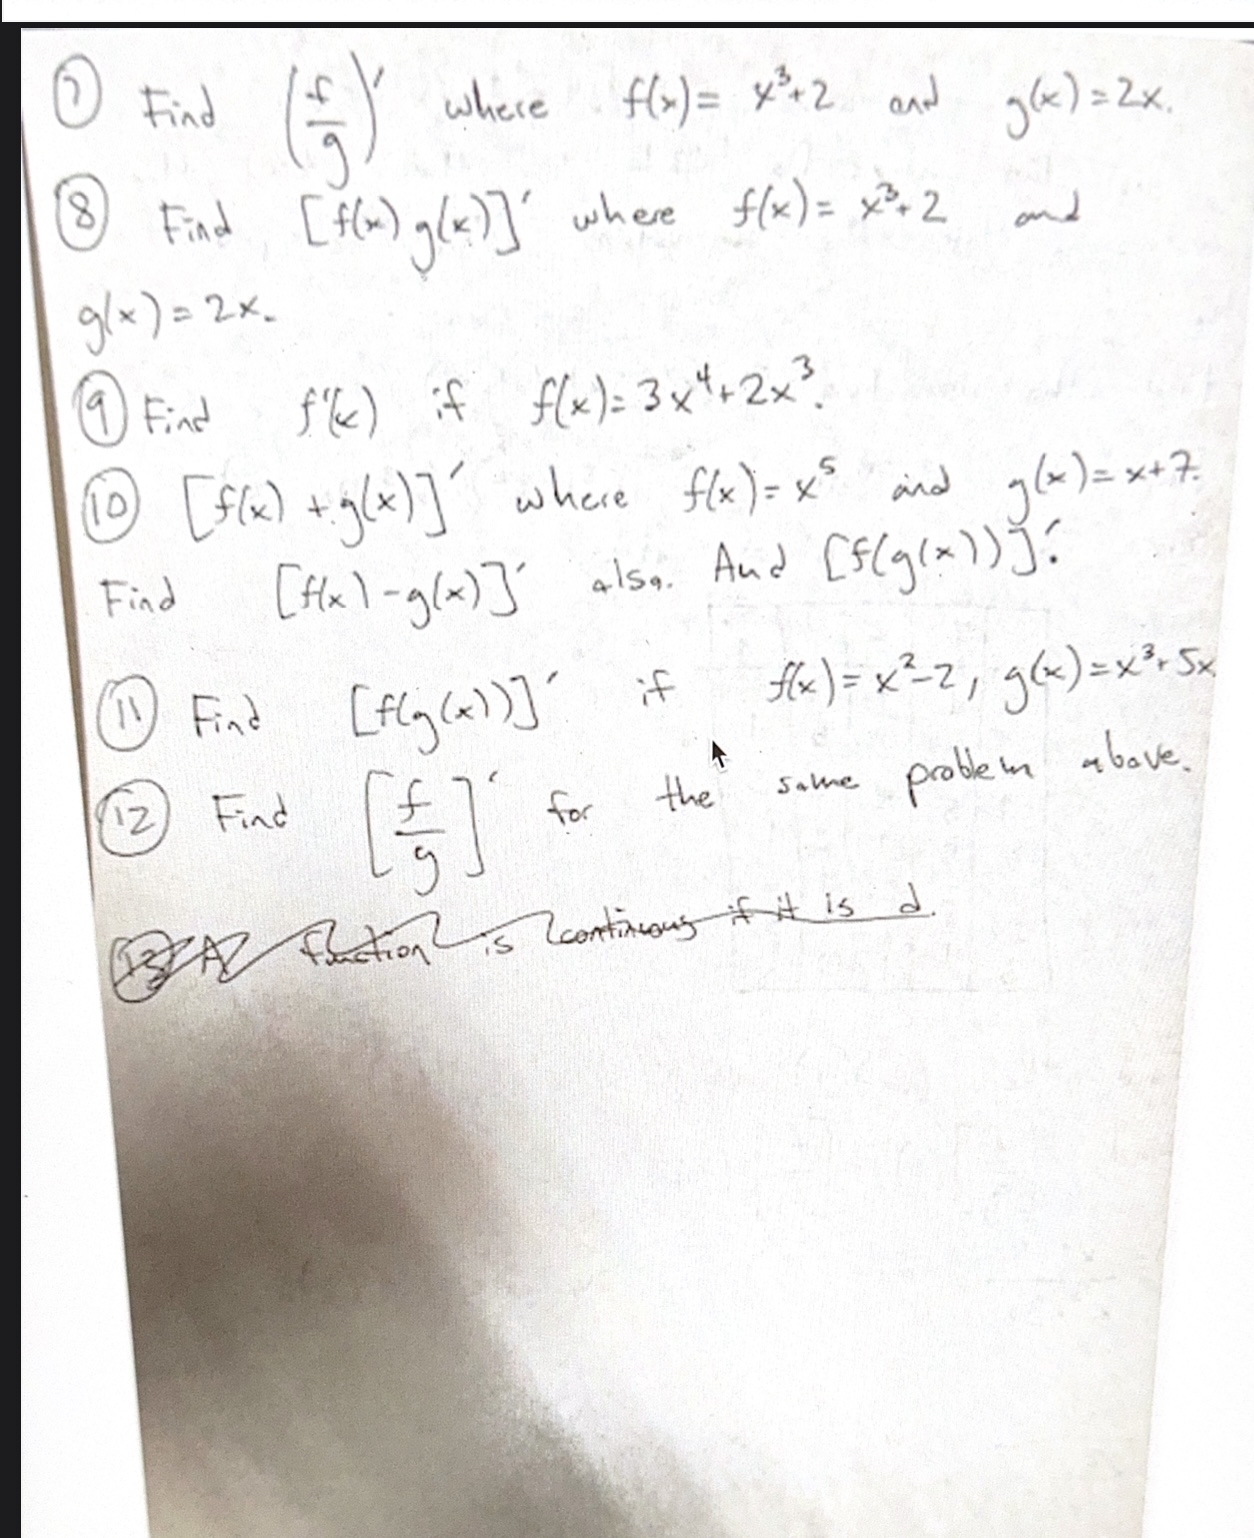 ⑦ Find (f/g)′ where f(x) = x³+2 and g(x) = 2x.
⑧ Find [f(x) g(x)]′ where f(x) = x³+2 and
g(x) = 2x.
⑨ Find f′(x) if f(x) = 3x⁴+2x³.
⑩ [f(x) + g(x)]′ where f(x) = x⁵ and g(x) = x+7.
Find [f(x) - g(x)]′ also. And [f(g(x))]′.
⑪ Find [f(g(x))]′ if f(x) = x²-2, g(x) = x³+5x
⑫ Find [f/g]′ for the same problem above.
⑬ A function is continuous if it is d.